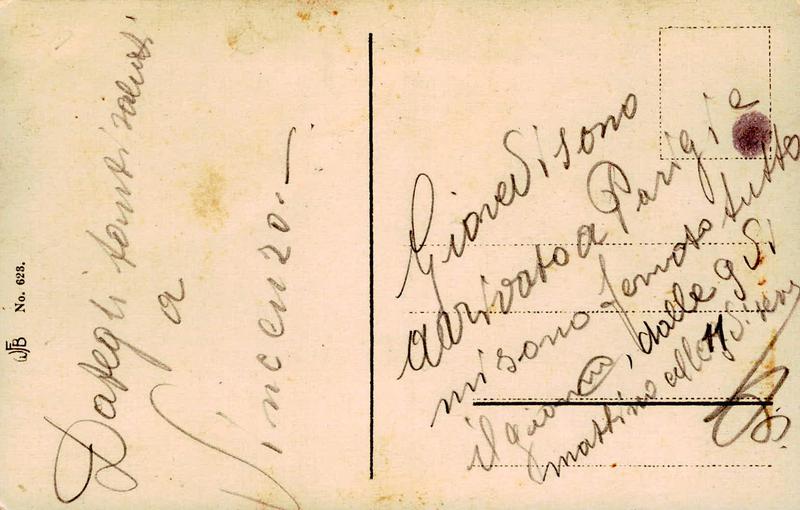 Dategli tanti saluti
a
Vincenzo.—
WFB No. 623.
Giovedi sono
arrivato a Parigi e
mi sono fermato tutto
il giorno, dalle 9 di
mattino alle 11 di sera